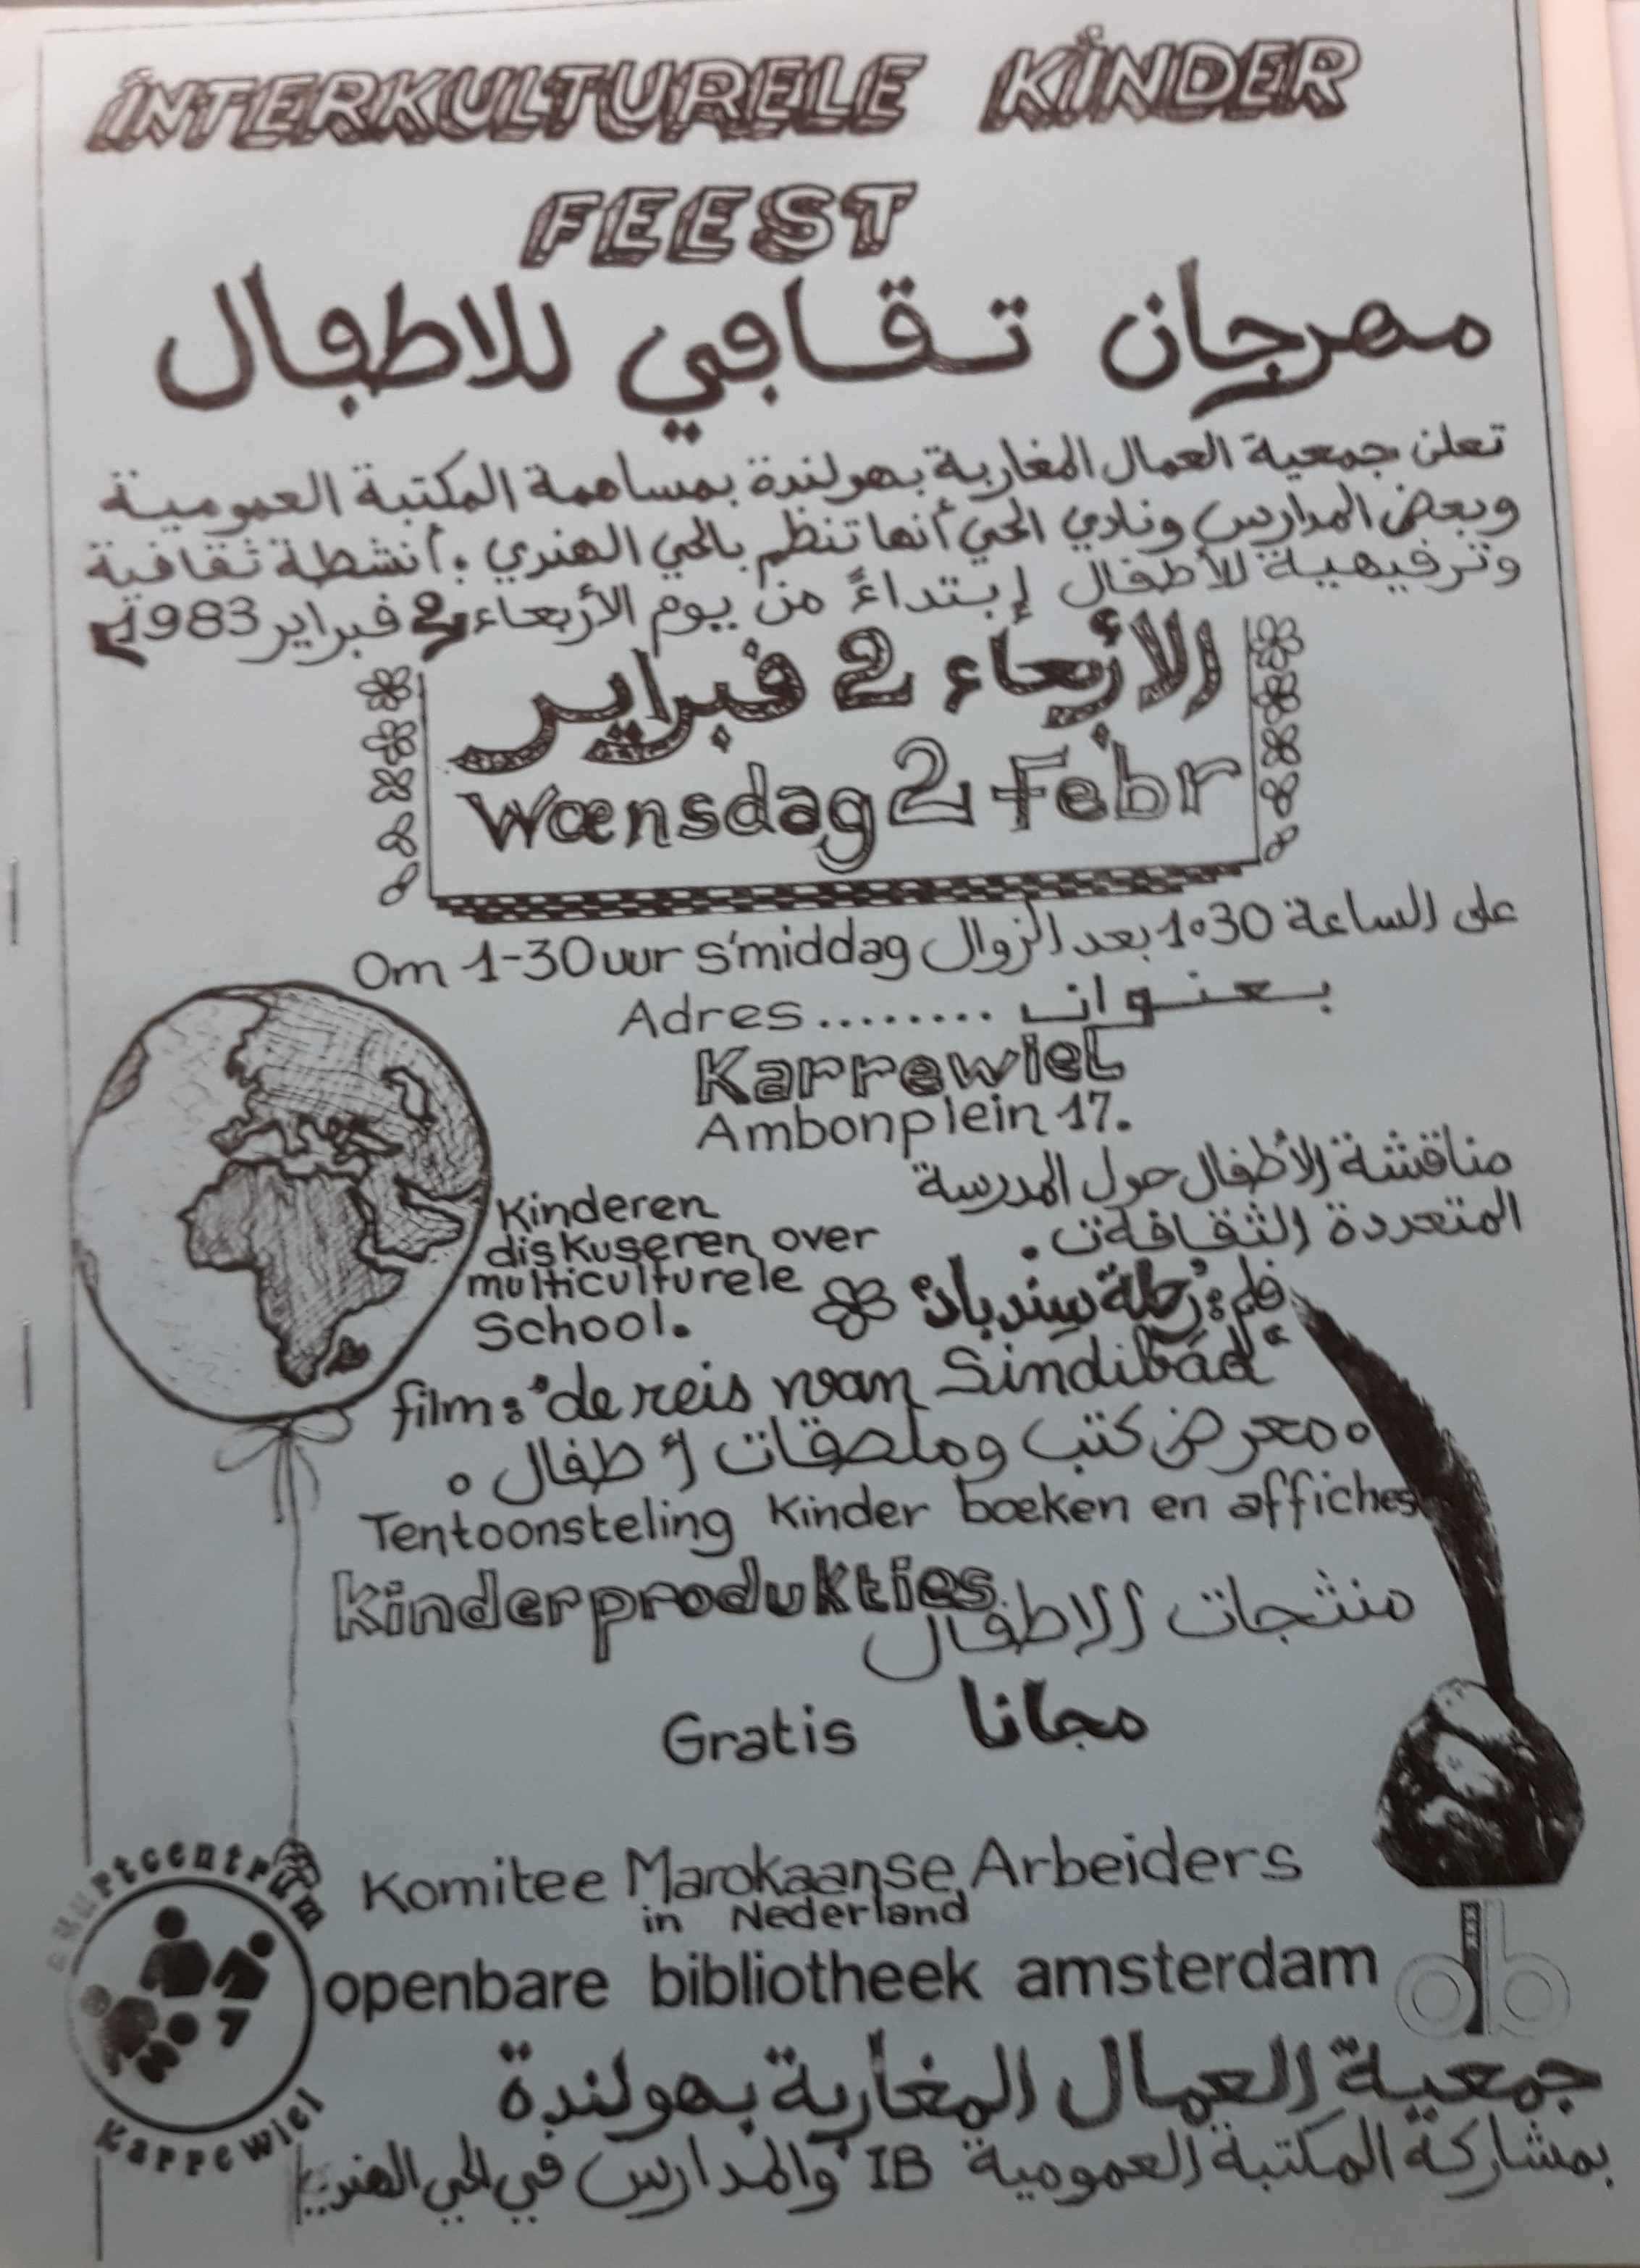 INTERKULTURELE KINDER
FEEST
مهرجان تقافي للاطفال
تعلن جمعية العمال المغاربة بهولندة بمساهمة المكتبة العمومية
وبعض المدارس ونادي الحي أنها تنظم بالحي الهندي: أنشطة ثقافية
وترفيهية للأطفال إبتداءً من يوم الأربعاء 2 فبراير 1983
الأربعاء 2 فبراير
Woensdag 2 Febr
على الساعة 1.30 بعد الزوال
Om 1-30 uur s'middag
Adres........ بعنوان
Karrewiel
Ambonplein 17.
مناقشة الأطفال حول المدرسة
المتعددة الثقافات.
Kinderen
diskuseren over
multiculturele
School.
فلم: رحلة سندباد
film: "de reis van Sindibad"
معرض كتب وملصقات أطفال
Tentoonsteling Kinder boeken en affiches
Kinderprodukties
منتجات الاطفال
Gratis مجانا
Komitee Marokaanse Arbeiders
in Nederland
openbare bibliotheek amsterdam
ob
Buurtcentrum
Karrewiel
جمعية العمال المغاربة بهولندة
بمشاركة المكتبة العمومية IB والمدارس في الحي الهندي